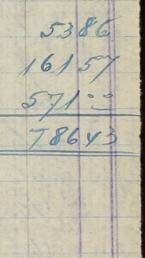 5386
16157
571 00
78643